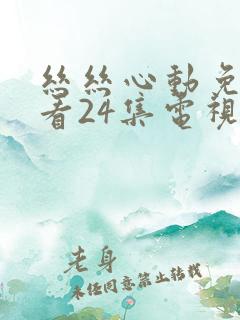 丝丝心动免
看24集电視
老身
未经同意禁止转载